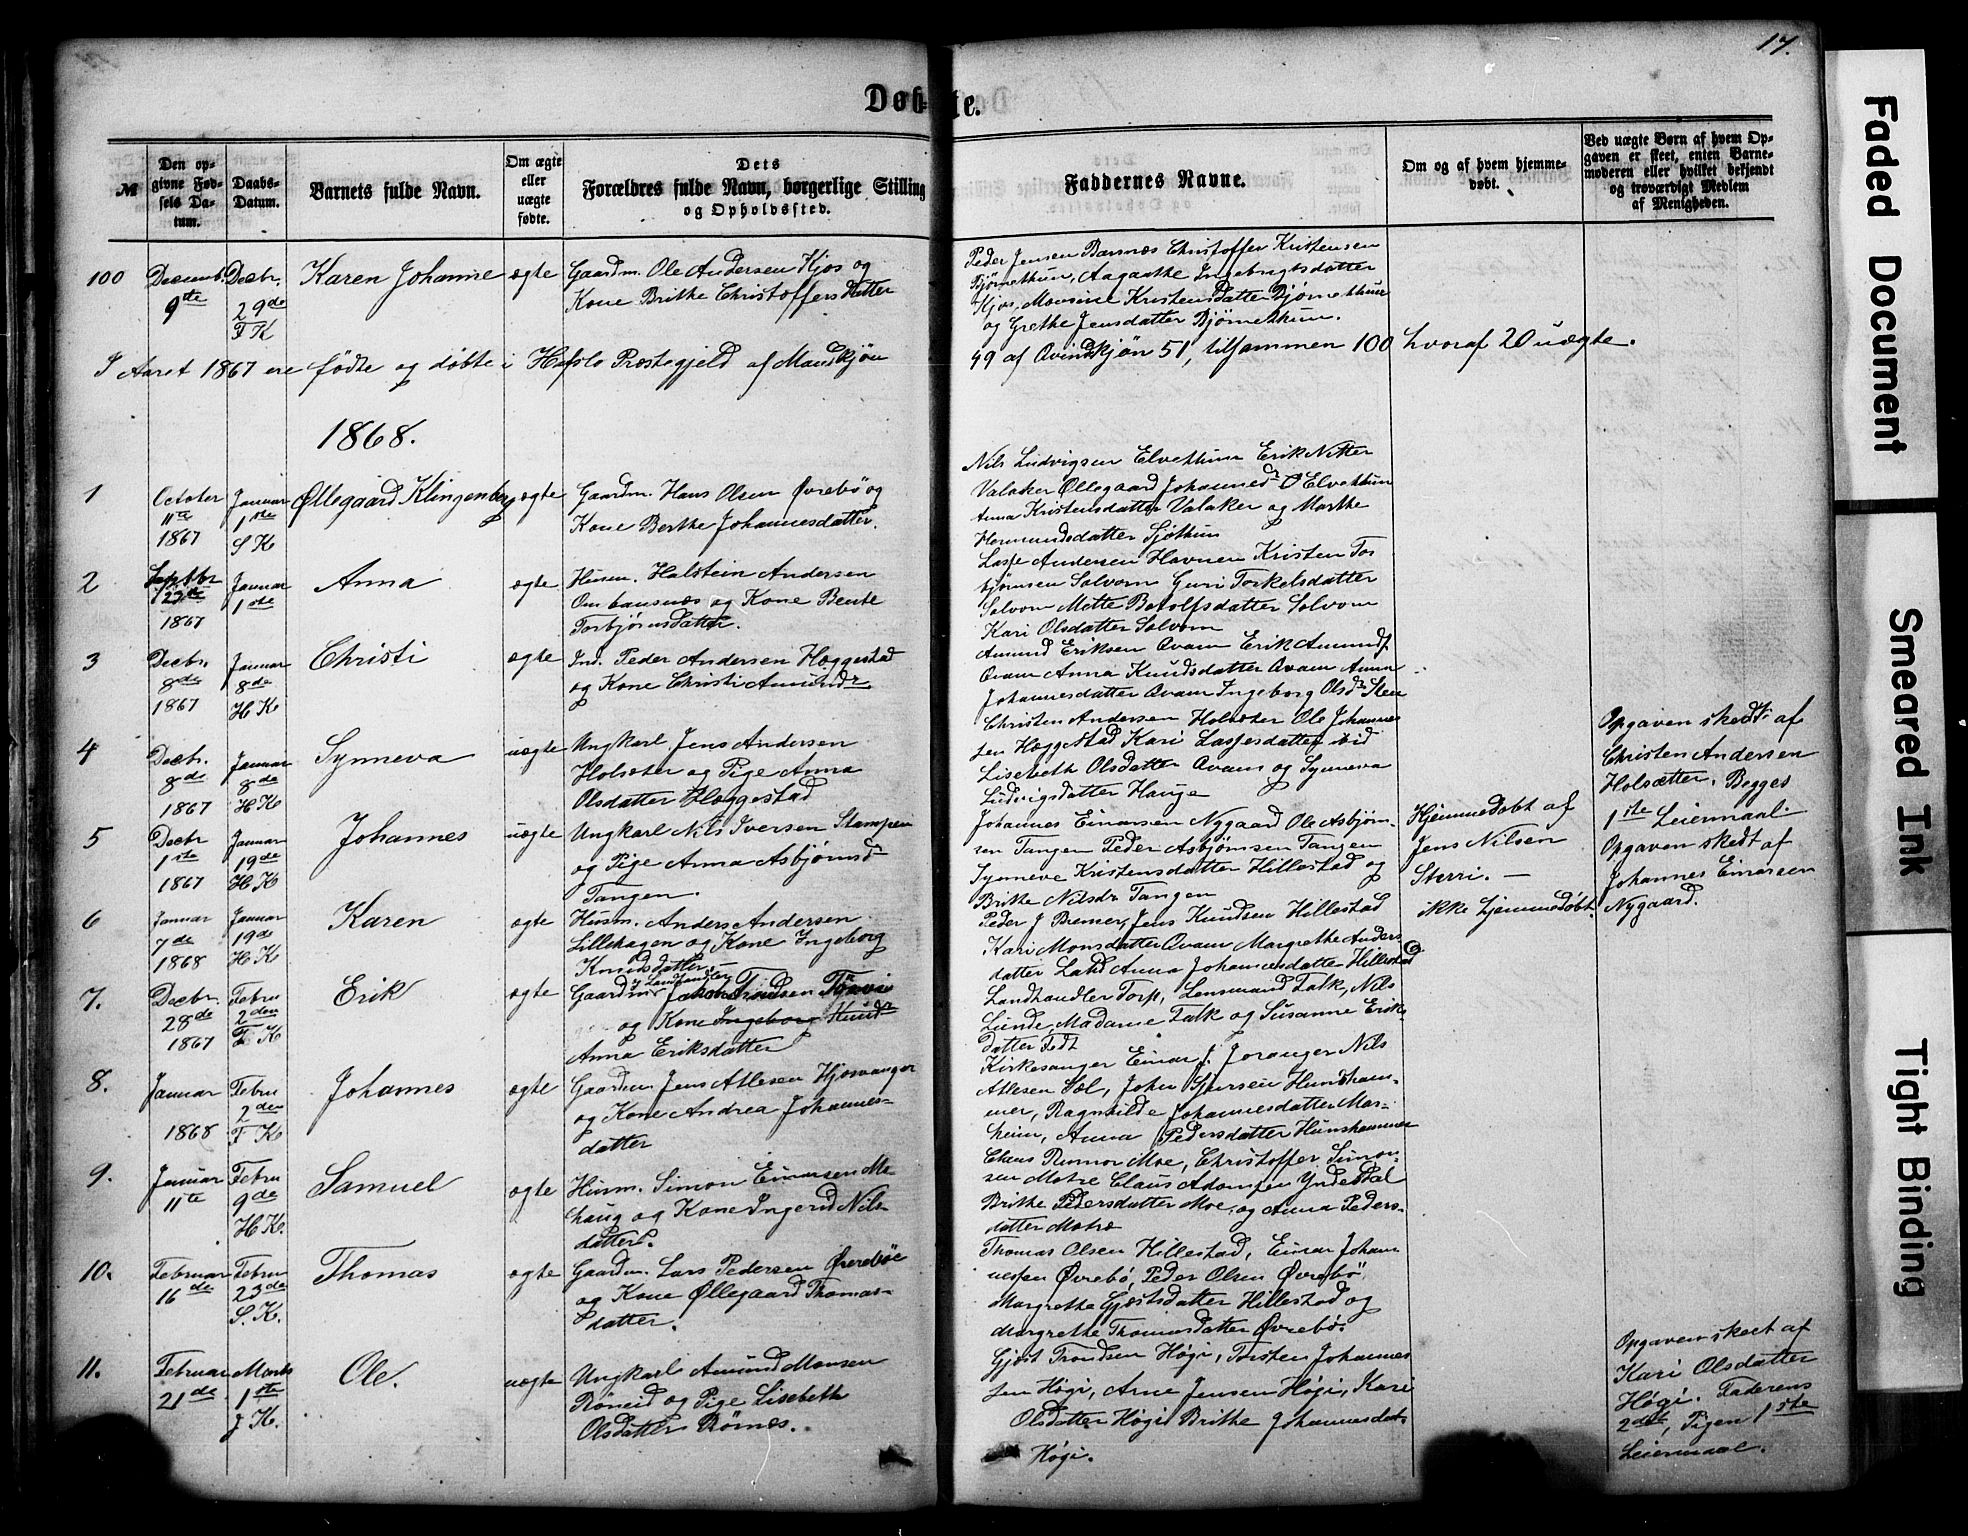 17.
Døb-te.
№
Den op-
givne Fød-
sels Da-
tum.
Daabs-
Datum.
Barnets fulde Navn.
Om ægte
eller
uægte
fødte.
Dets
Forældres fulde Navn, borgerlige Stilling
og Opholdssted.
Faddernes Navne.
Om og af hvem hjemme-
døbt.
Ved uægte Børn af hvem Op-
gaven er skeet, enten Barne-
moderen eller hvilket bekjendt
og troværdigt Medlem
af Menigheden.
100
Decemb.
9te
Decbr.
29de
F K
Karen Johanne
ægte
Gaardm. Ole Andersen Kjos og
Kone Brithe Christoffersdatter
Peder Jensen Barsnæs Christoffer Kristensen
Bjørnethun, Aagaathe Ingebrigtsdatter
Kjos, Monsine Kristensdatter Bjørnethun
og Grethe Jensdatter Bjørnethun.
I Aaret 1867 ere fødte og døbte i Hafslo Præstegjeld af Mandkjøn
49 af Qvindekjøn 51, tilsammen 100 hvoraf 20 uægte.
1868.
1
October
11te
1867
Januar
1ste
S K
Øllegaard Klingenberg
ægte
Gaardm. Hans Olsen Øvrebø og
Kone Berthe Johannesdatter.
Nils Ludvigsen Elvethun Erik Nitter
Valaker Øllegaard Johannesdr Elvethun
Anna Kristensdatter Valaker og Marthe
Hermundsdatter Sjøthun
2
Septbr
1867
Januar
1ste
Anna
ægte
Husm. Halstein Andersen
Ombandsnæs og Kone Bente
Torbjørnsdatter.
Lasse Andersen Havnen Kristen Tor
bjørnsen Solvorn Guri Torkelsdatter
Solvorn Mette Botolfsdatter Solvorn
Kari Olsdatter Solvorn
3
Decbr.
8de
1867
Januar
8de
H K
Christi
ægte
Ins. Peder Andersen Høggestad
og Kone Christi Amundsdr
Amund Eriksen Qvam Erik Amunds
Qvam Anna Knudsdatter Qvam Anna
Johannesdatter Qvam Ingeborg Olsdr Steen
4
Decbr.
8de
1867
Januar
8de
H K
Synneva
uægte
Ungkarl Jens Andersen
Holsæter og Pige Anna
Olsdatter Høggestad
Christen Andersen Holsæter Ole Johannes
sen Høggestad Kari Lassesdatter ibid
Lisebeth Olsdatter Qvam og Synneva
Ludvigsdatter Hauge
Opgaven skedt af
Christen Andersen
Holsætter. Begges
1ste Leiermaal.
5
Decbr
1ste
1867
Januar
19de
H K
Johannes
uægte
Ungkarl Nils Iversen Stampen
og Pige Anna Asbjørnsdr
Tangen.
Johannes Einarsen Nygaard Ole Asbjørn-
sen Tangen Peder Asbjørnsen Tangen
Synneve Kristensdatter Hillestad og
Brithe Nilsdr Tangen
Hjemmedøbt af
Jens Nilsen
Sterri. —
Opgaven skedt af
Johannes Einarsen
Nygaard.
6
Januar
7de
1868
Januar
19de
H K
Karen
ægte
Husm. Anders Andersen
Lillehagen og Kone Ingeborg
Knudsdatter —
Peder J Bremer, Jens Knudsen Hillestad
Kari Monsdatter Qvam Margrethe Anders
datter Lahd Anna Johannesdatter Hillestad
ikke hjemmedøbt.
7.
Decbr.
28de
1867
Febru
2den
F. K
Erik
ægte
Gaardm. og Landhandler Jakob Trondsen
og Kone Ingeborg
Anna Eriksdatter
Landhandler Torp, Lensmand Falk, Nils
Lunde, Madame Falk og Susanne Eriks-
datter Fedt
8.
Januar
1868
Febru
2den
F K
Johannes
ægte
Gaardm. Jens Atlesen Hjosvanger
og Kone Andrea Johannes-
datter
Kirkesanger Einar J. Joranger Nils
Atlesen Sæl, John Sjursen Hundsham-
mer, Ragnhilde Johannesdatter Mar-
heim, Anna Pedersdatter Hunshammer
9.
Januar
11te
Febru
9de
H K.
Samuel
ægte
Husm. Simon Einarsen Mo-
haug og Kone Ingerid Nils-
datter.
Claus Rumor Moe, Christoffer Simon-
sen Molre Claus Adamsen Yndestal
Brithe Pedersdatter Moe, og Anna Peders-
datter Molre
10.
Februar
16de
Febru
23de
S. K.
Thomas
ægte
Gaardm. Lars Pedersen Øvrebøe
og Kone Øllegaard Thomas-
datter.
Thomas Olsen Hillestad, Einar Johan
nessen Øvrebø, Peder Olsen Øvrebø
Margrethe Gjøstsdatter Hillestad og
Margrethe Thomasdatter Øvrebø.
11.
Februar
21de
Marts
1ste
J K.
Ole.
uægte
Ungkarl Amund Monsen
Røneid og Pige Lisebeth
Olsdatter Rørnæs.
Gjøst Trondsen Høgi, Torsten Johannes
sen Høgi, Arne Jensen Høgi, Kari
Olsdatter Høgi Brithe Johannesdat.
Høgi.
Opgaven skeet af
Kari Olsdatter
Høgi. Faderens
2det, Pigen 1ste
Leiermaal.
Faded Document
Smeared Ink
Tight Binding